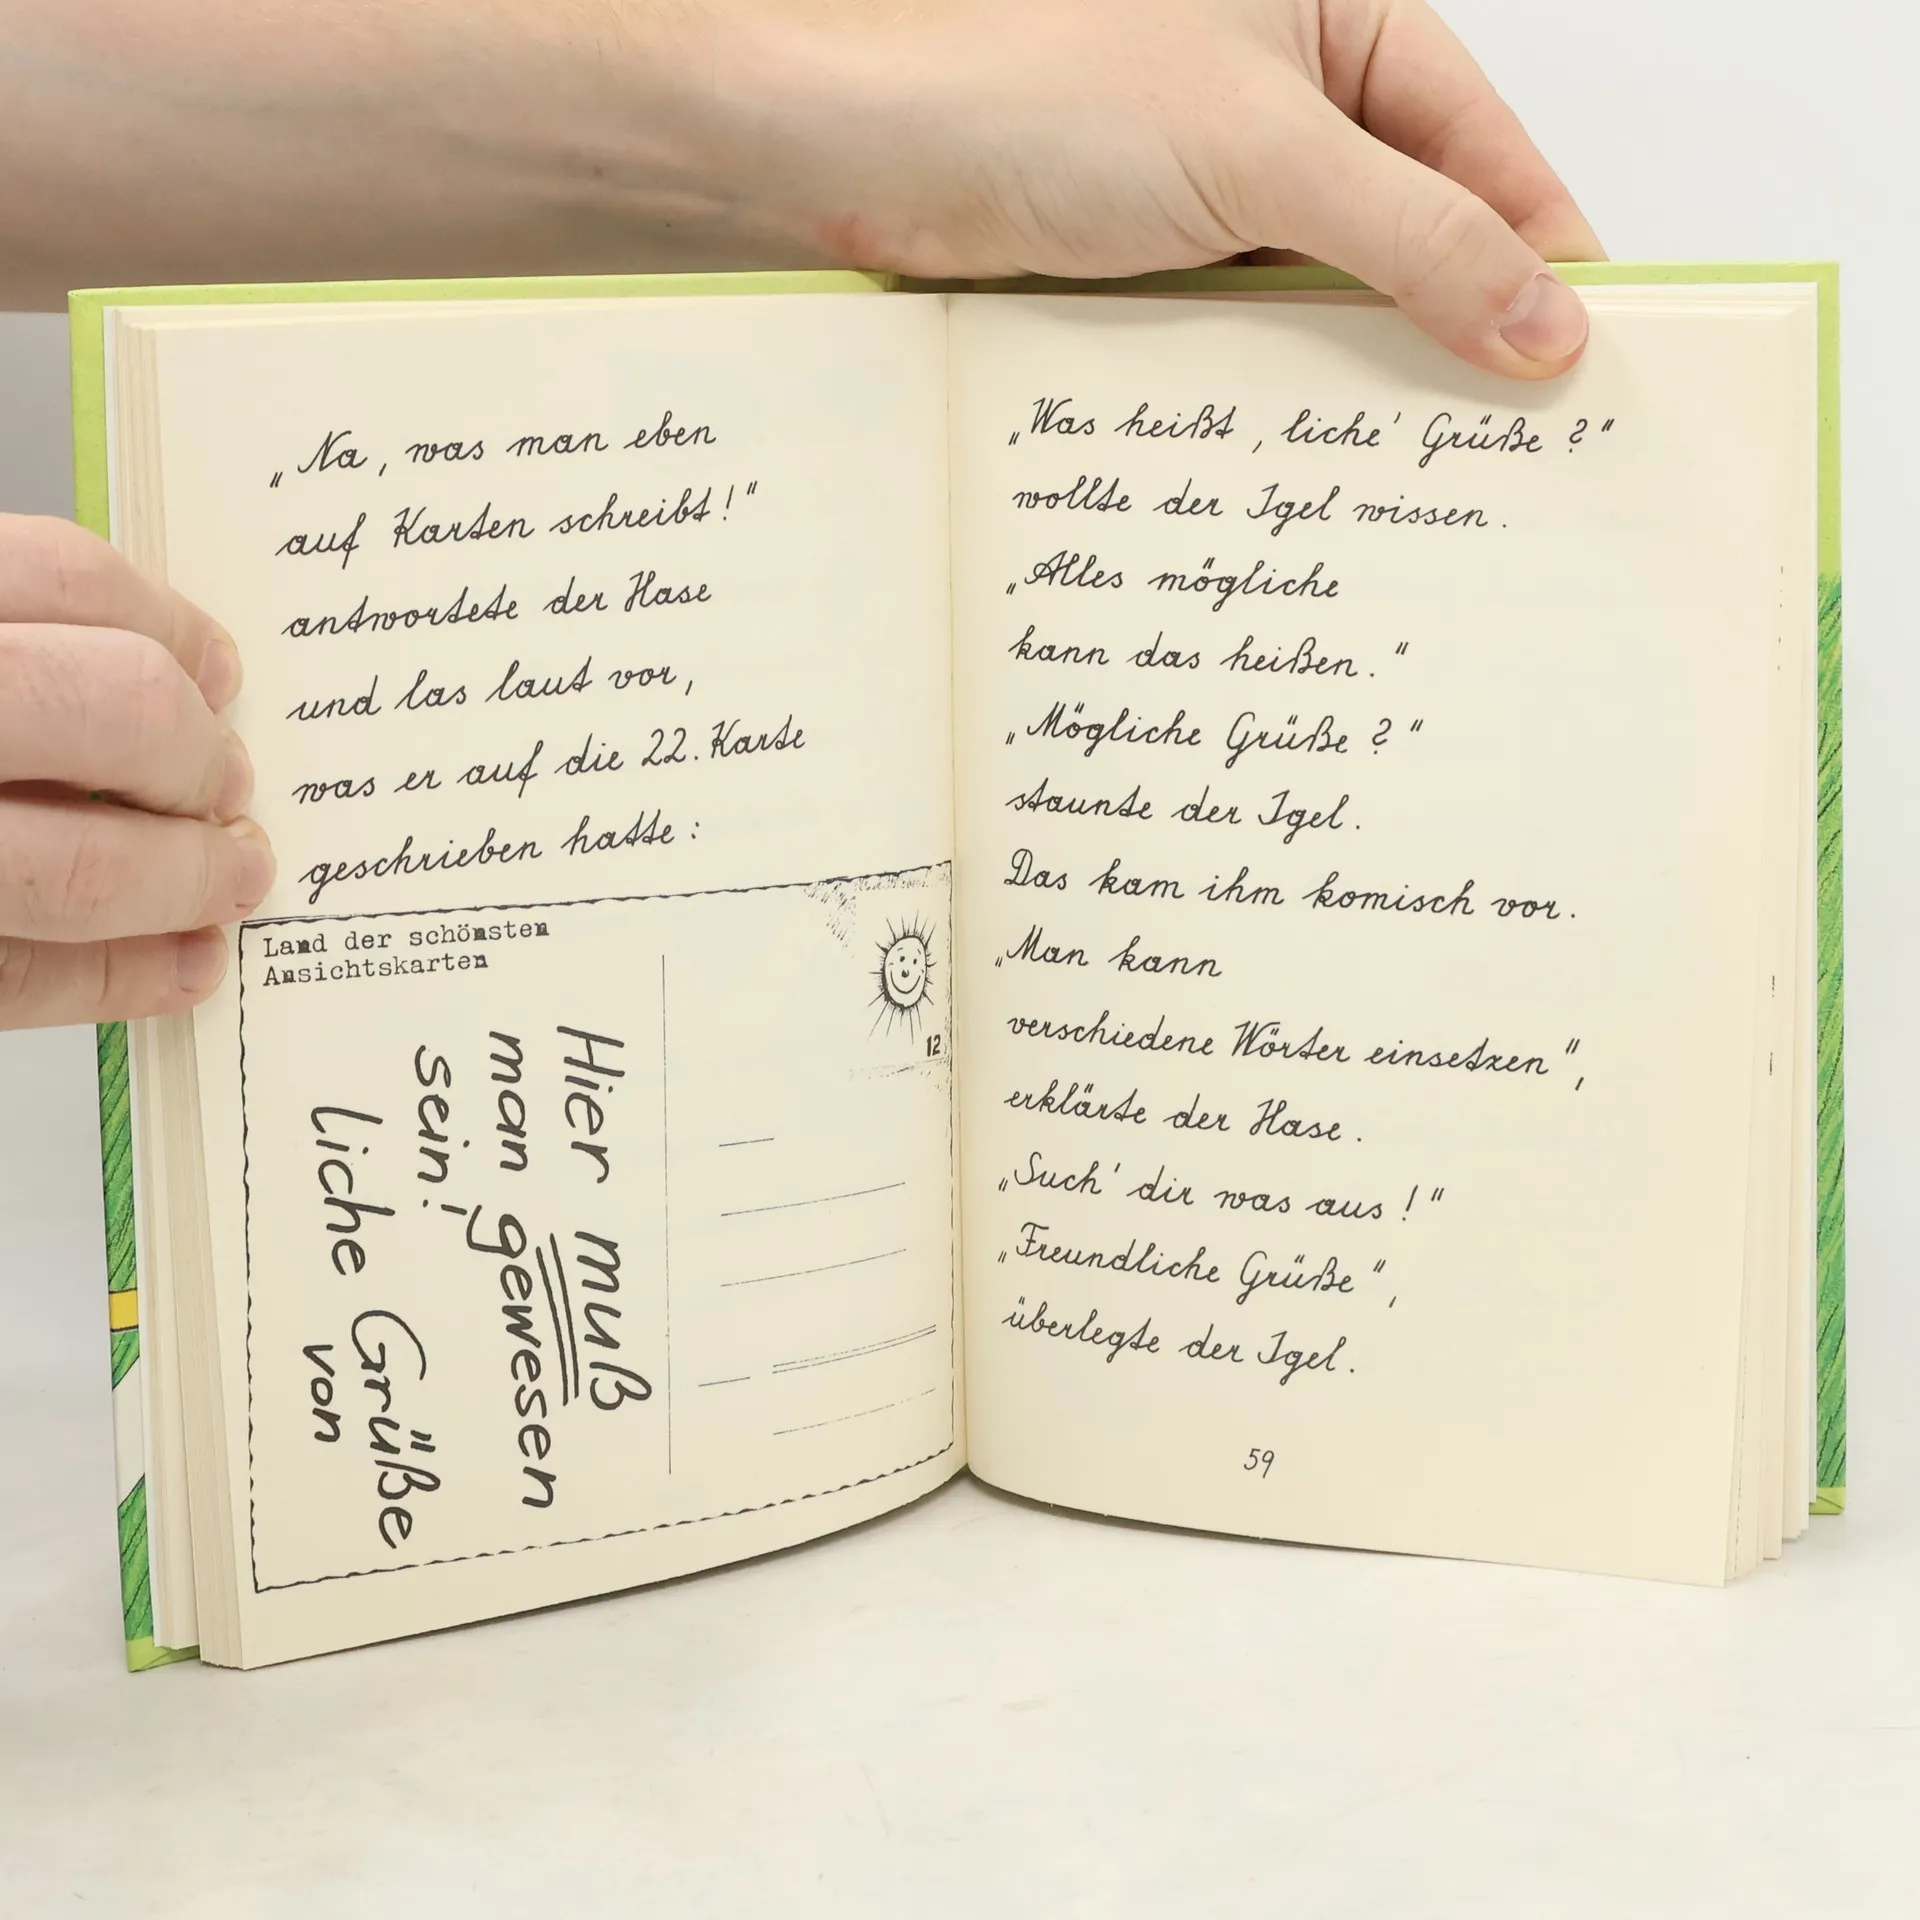 „Na, was man eben
auf Karten schreibt!“
antwortete der Hase
und las laut vor,
was er auf die 22. Karte
geschrieben hatte:
Land der schönsten
Ansichtskarten
12
Hier muß
man gewesen
sein!
liche Grüße
von
„Was heißt ‚liche' Grüße?“
wollte der Igel wissen.
„Alles mögliche
kann das heißen.“
„Mögliche Grüße?“
staunte der Igel.
Das kam ihm komisch vor.
„Man kann
verschiedene Wörter einsetzen“,
erklärte der Hase.
„Such' dir was aus!“
„Freundliche Grüße“,
überlegte der Igel.
59